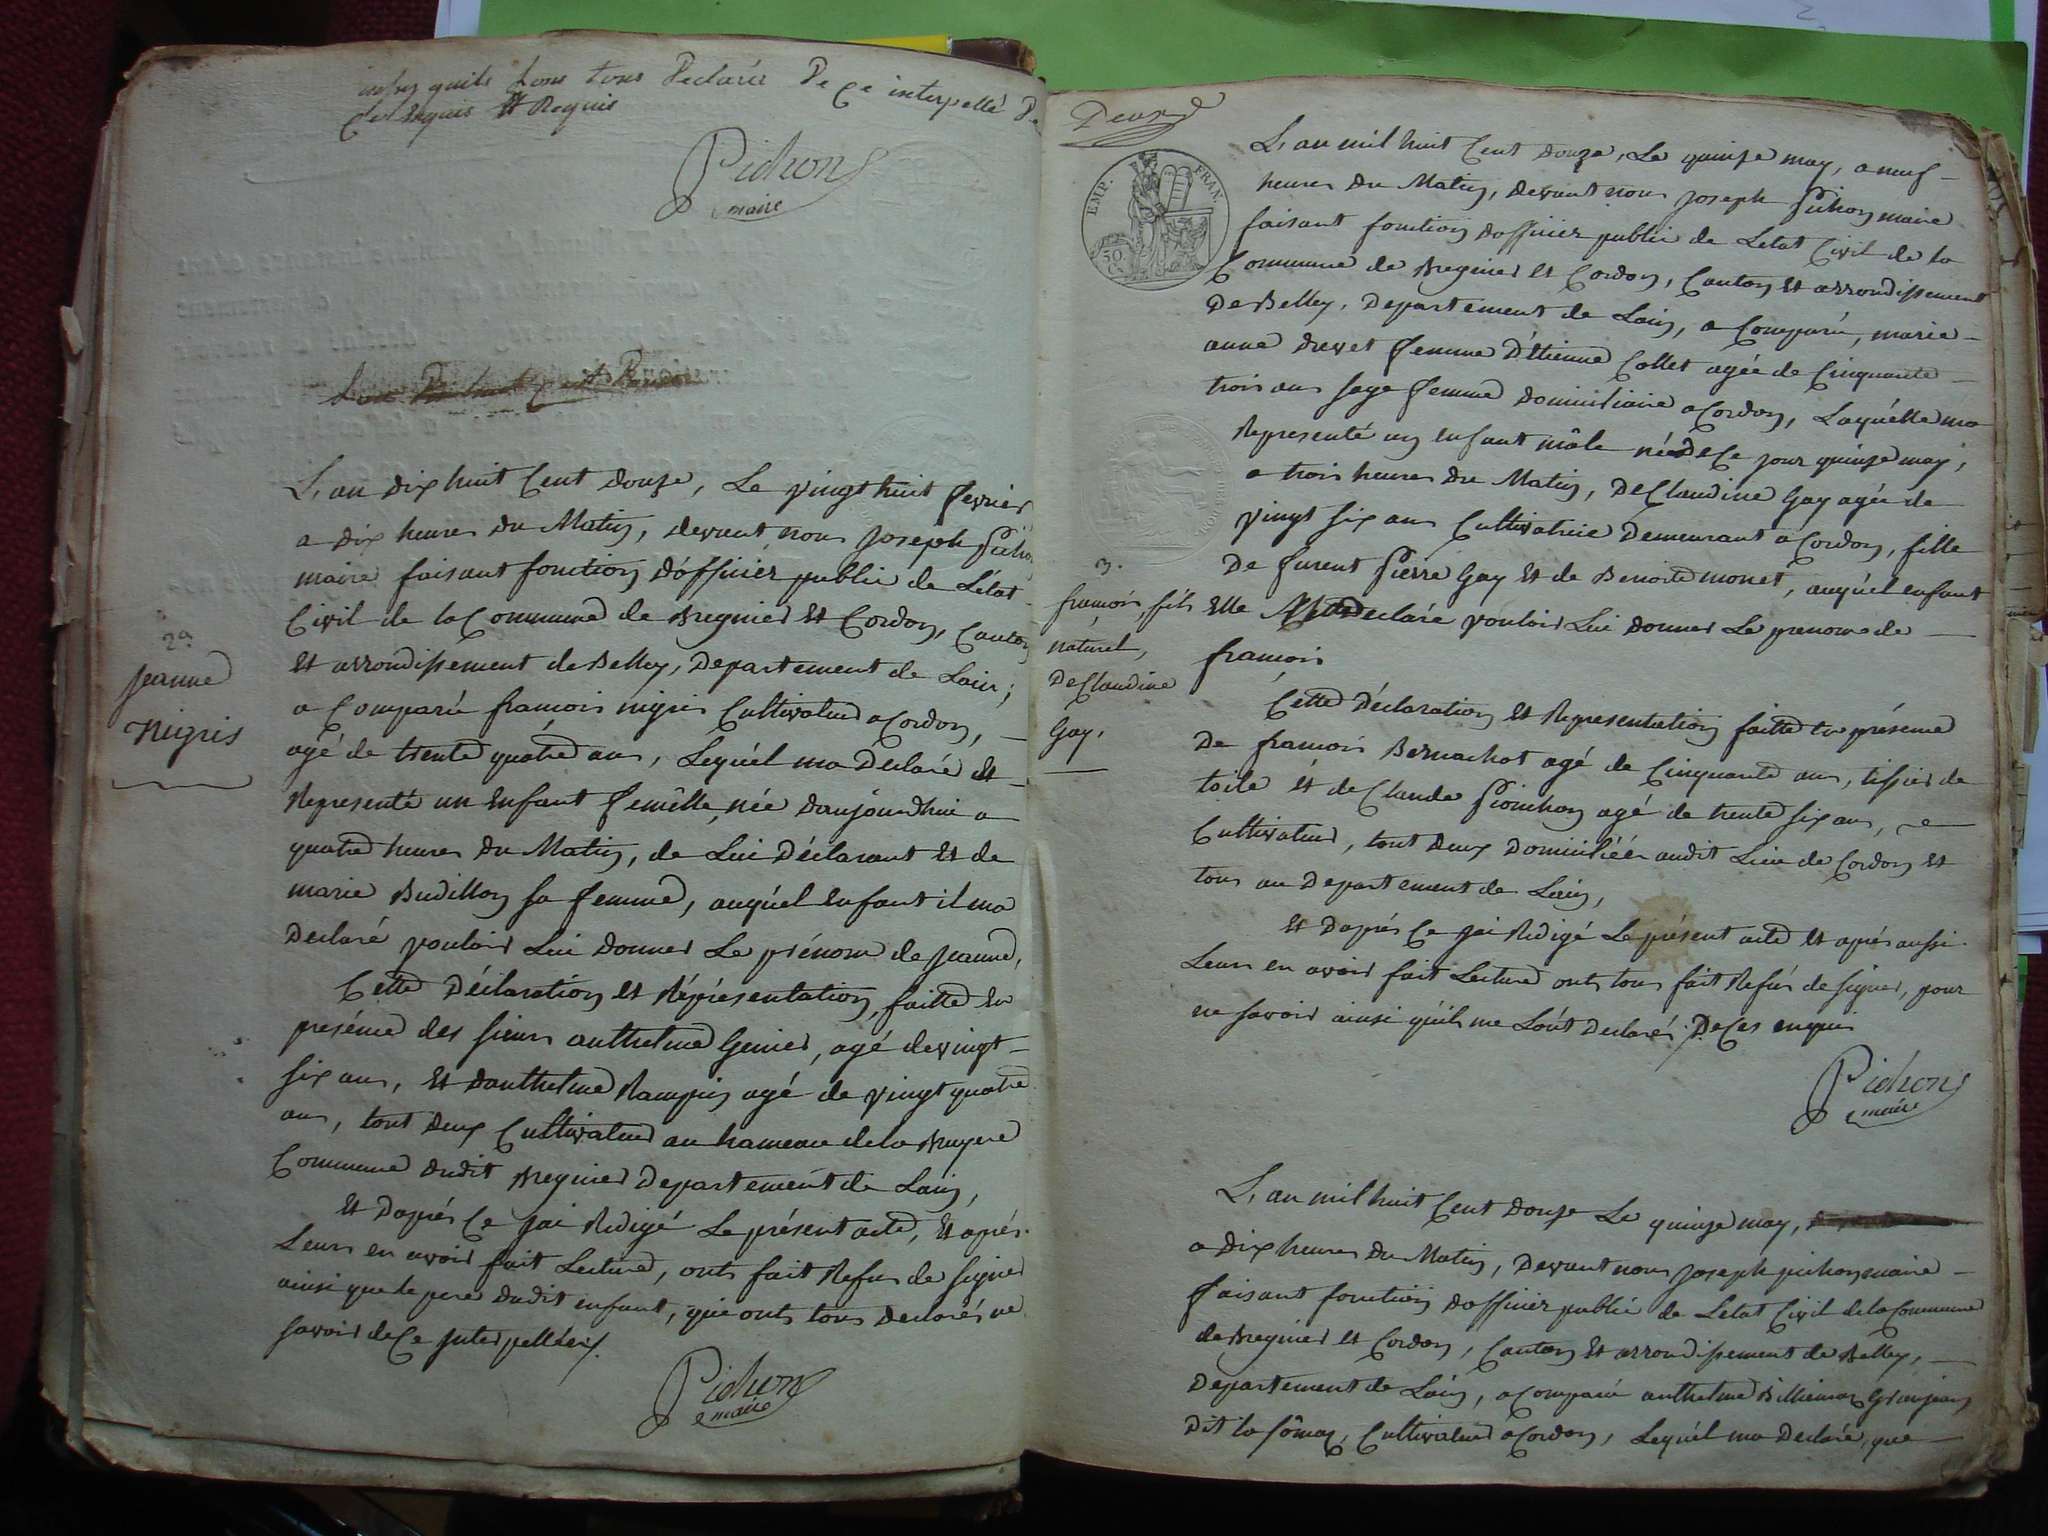 quils Lons tous Declarés De Ce interpellé De
Ces Enquis Et Requis
Pichon
maire
L, an dix huit Cent douze, Le vingt huit fevrier
a dix heures du Matin, devant nous joseph Picho
maire faisant fonction d'officier public de L'état
Civil de la Commune de Bregnier Et Cordon, Canton
2e
jeanne
nigris
Et arrondissement de Belley, Departement de Lain;
a Comparu francois nigris Cultivateur a Cordon,
agé de trente quatre ans, Lequél ma Déclaré et
Representé un Enfant femélle, née d'aujourdhui a
quatre heures du Matin, de Lui Déclarant Et de
marie Budillon sa femme, auquél Enfant il ma
Déclaré vouloir Lui donner Le prénom de jeanne,
Cette Déclaration Et Réprésentation, faitte En
présence des sieurs anthelme Genier, agé de vingt
six ans, Et d'anthelme Rampin agé de vingt quatre
ans, tout deux Cultivateur au hameau de la Bruyere
Commune dudit Bregnier Departement de Lain,
Et Daprés Ce jai Redigé Le présent acte, Et aprés
Leurs en avoir fait Lecture, onts fait Refus de signer
ainsi que le pere dudit enfant, que onts tous Declarés ne
savoir de Ce Interpellées.
Pichon
maire
Deux
EMP. FRAN.
50
C.
L, an mil huit Cent douze, Le quinze may, a neuf
heures du Matin, devant nous joseph Pichon maire
faisant fonction d'officier public de Létat Civil de la
Commune de Bregnier Et Cordon, Canton Et arrondissement
De Belley, Departement de Lain, a Comparu, marie
anne drevet femme D'étienne Collet agée de Cinquante
trois ans sage femme domiciliaire a Cordon, Laquélle ma
Representé un Enfant mâle né de Ce jour quinze may,
a trois heures du Matin, De Claudine Gay agée de
vingt six ans Cultivatrice Demeurant a Cordon, fille
De furent Pierre Gay Et de Benoite monet, auquél enfant
3.
francois, fils
naturel,
De Claudine
Gay,
Elle Declaré vouloir Lui donner Le prenom de
francois
Cette Déclaration Et Représentation faitte en présence
De francois Bernachot agé de Cinquante ans, tissier de
toile Et de Claude agé de trente six ans,
Cultivateur, tout deux Domiciliées audit Lieu de Cordon Et
tous au Departement de Lain,
Et Daprés Ce jai Redigé Le présent acte Et aprés aussi
Leurs en avoir fait Lecture onts tous fait Refus de signer, pour
ne savoir ainsi quils me Lont Declarés. De Ces enquis
Pichon
maire
L, an mil huit Cent douze Le quinze may,
a dix heures du Matin, Devant nous joseph pichon maire
faisant fonction d'officier public de Létat Civil de la Commune
de Bregnier Et Cordon, Canton Et arrondissement de Belley,
Departement de Lain, a Comparu anthelme Billiemaz Granjean
Dit la sômaz, Cultivateur a Cordon, Lequél ma Declaré, que